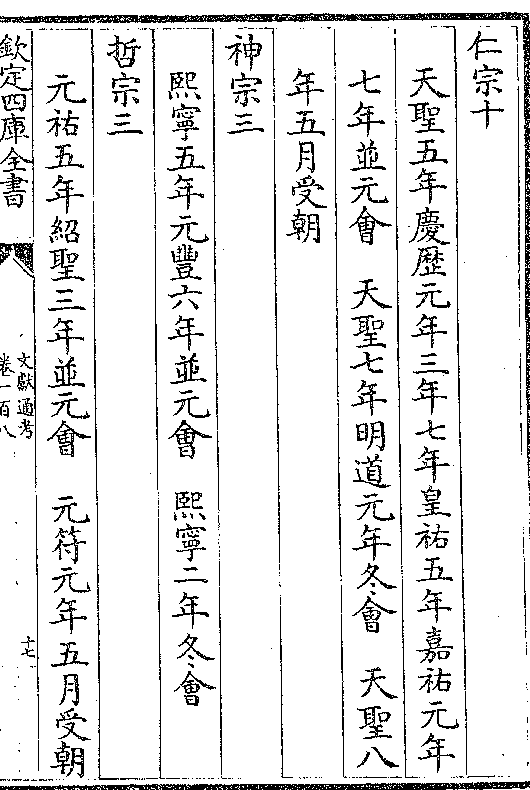 仁宗十
天聖五年慶歴元年三年七年皇祐五年嘉祐元年
七年並元會　天聖七年明道元年冬會　天聖八
年五月受朝
神宗三
熙寧五年元豐六年並元會　熙寧二年冬會
哲宗三
元祐五年紹聖三年並元會　元符元年五月受朝
欽定四庫全書
文獻通考
卷一百八
十七